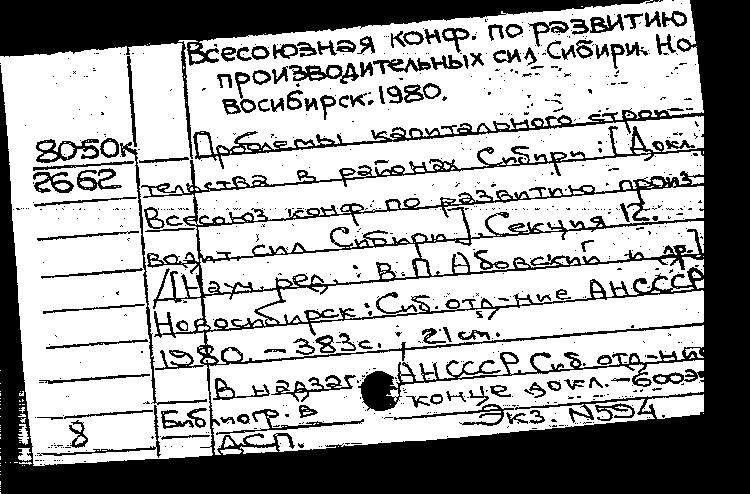 Всесоюзная конф. по развитию
производительных сил Сибири. Но-
восибирск. 1980.
8050к
2662
Проблемы капитального строи-
тельства в районах Сибири : [Докл.
Всесоюз конф. по развитию произ-
водит. сил Сибири]. Секция 12.
/[Науч. ред. : В.П. Абовский и др.]
Новосибирск : Сиб. отд-ние АНСССР
1980. – 383с. ; 21см.
В надзаг : АНСССР. Сиб. отд-ние
Библиогр. : в конце докл. – 600э
8
Экз. N594.
ДСП.